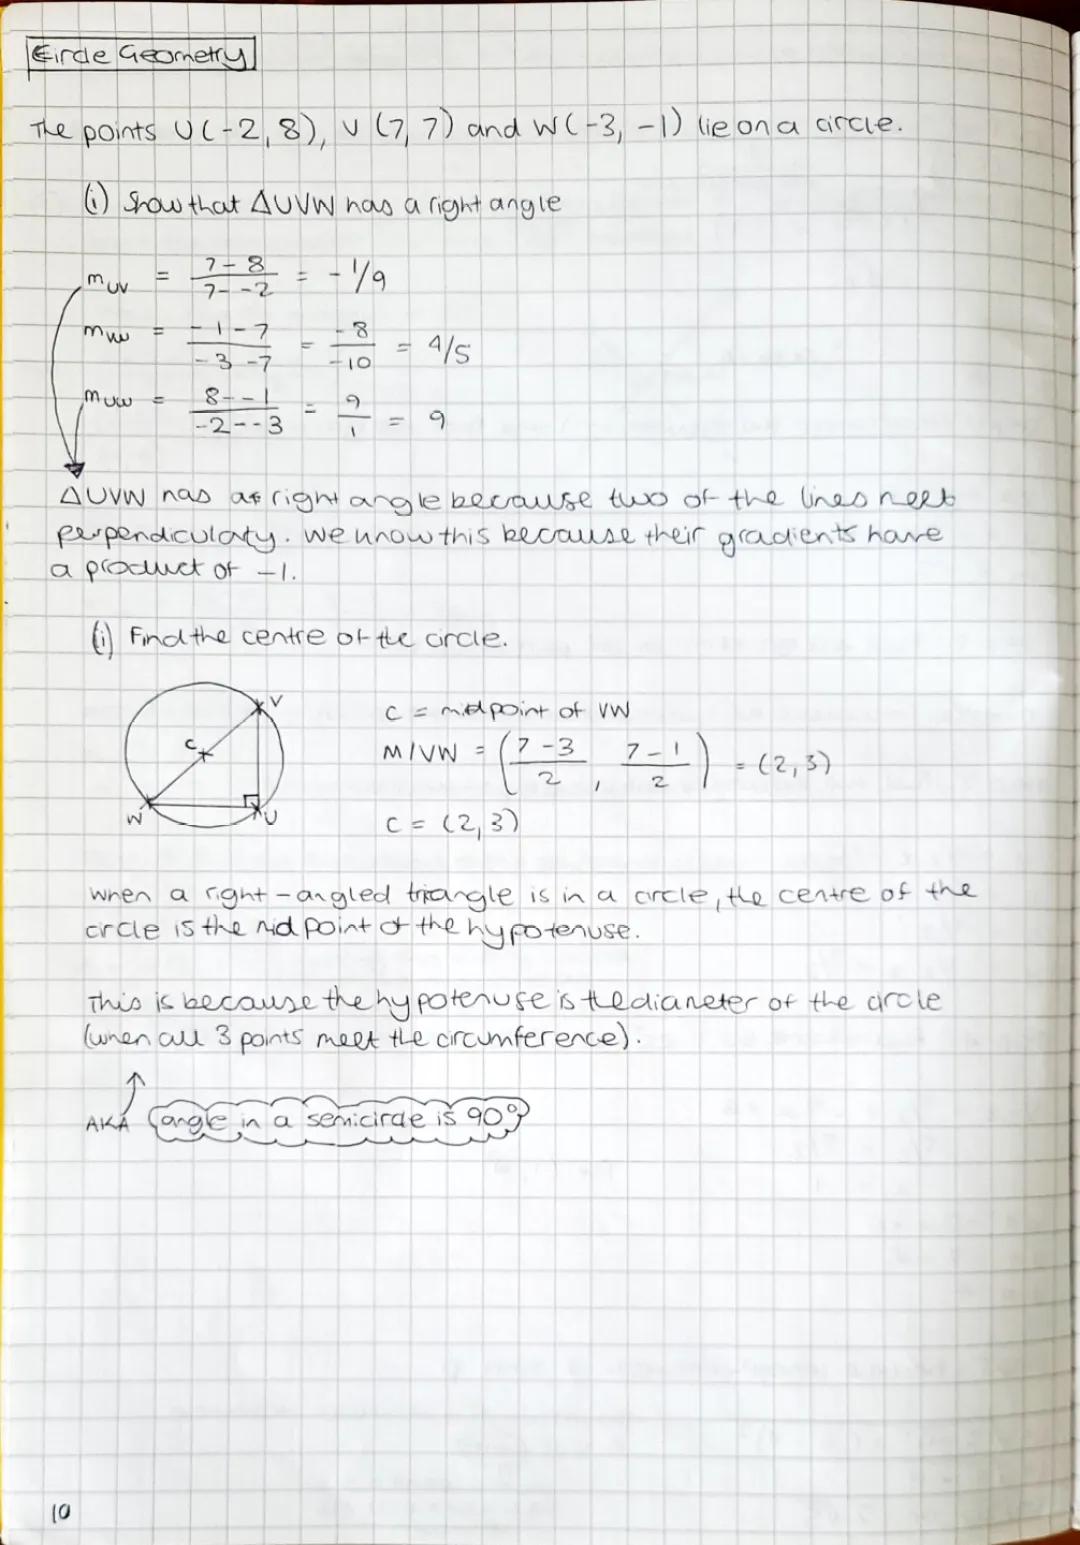 Circle Geometry
The points U(-2,8), V(7,7) and W(-3, -1) lie on a circle.
(i) Show that ΔUVW has a right angle
mUV = 7-8 / 7--2 = -1/9
mVW = -1-7 / -3-7 = -8 / -10 = 4/5
mUW = 8--1 / -2--3 = 9/1 = 9
ΔUVW has a right angle because two of the lines meet
perpendicularly. We know this because their gradients have
a product of -1.
(i) Find the centre of the circle.
V
C
W
U
C = midpoint of VW
M/VW = (7-3 / 2 , 7-1 / 2) = (2,3)
C = (2,3)
When a right-angled triangle is in a circle, the centre of the
circle is the midpoint of the hypotenuse.
This is because the hypotenuse is the diameter of the circle
(when all 3 points meet the circumference).
AKA angle in a semicircle is 90°
10